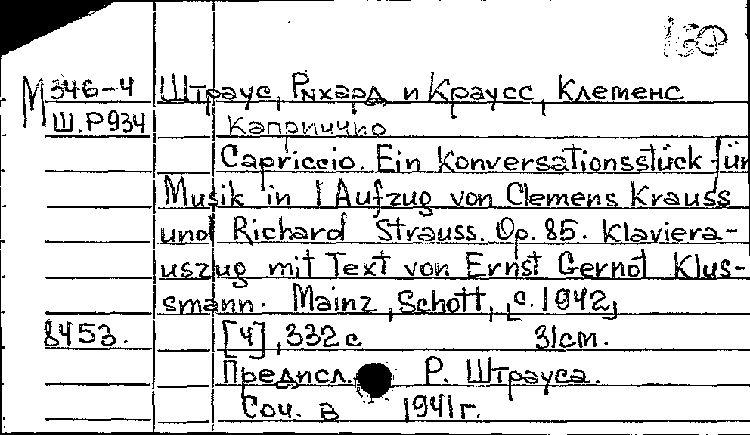 150
М 346-4 Штраус, Рихард и Краусс, Клеменс
Ш.Р934 Каприччио
Capriccio. Ein Konversationsstück für
Musik in 1 Aufzug von Clemens Krauss
und Richard Strauss. Op. 85. Klaviera-
uszug mit Text von Ernst Gernot Klus-
smann. Mainz, Schott, [c. 1942]
8453. [4], 332 с 31 см.
Предисл. Р. Штрауса.
Соч. в 1941 г.